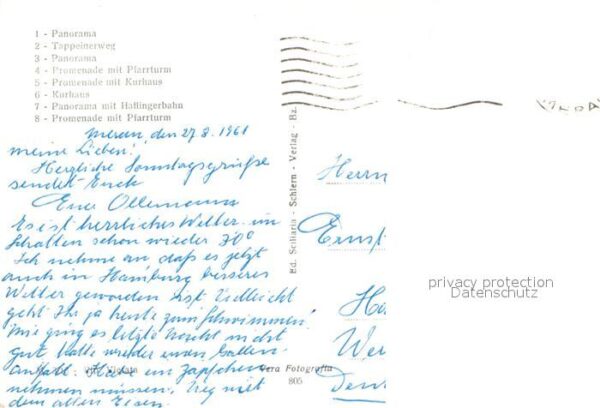 1 - Panorama
2 - Tappeinerweg
3 - Panorama
4 - Promenade mit Pfarrturm
5 - Promenade mit Kurhaus
6 - Kurhaus
7 - Panorama mit Haflingerbahn
8 - Promenade mit Pfarrturm
Meran, den 27.8.1961
Meine Lieben!
Herzliche Sonntagsgrüße
sendet Euch
Euer
Es ist herrliches Wetter im
Schatten schon wieder 30°
Ich nehme an daß es jetzt
auch in Hamburg besseres
Wetter geworden ist. Vielleicht
geht Ihr ja heute zum Schwimmen!
Mir ging es letzte Nacht nicht
gut. Hatte wieder einen Gallen-
anfall. Habe ein Zäpfchen
nehmen müssen. Weg mit
dem alten Eisen.
Vera Fotografia
805
Ed. Sciliaria - Schlern - Verlag - Bz.
Herrn
Ernst
privacy protection
Datenschutz